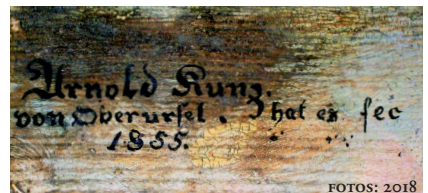 Arnold Kunz.
von Oberursel. hat es fec
1855.
FOTOS: 2018